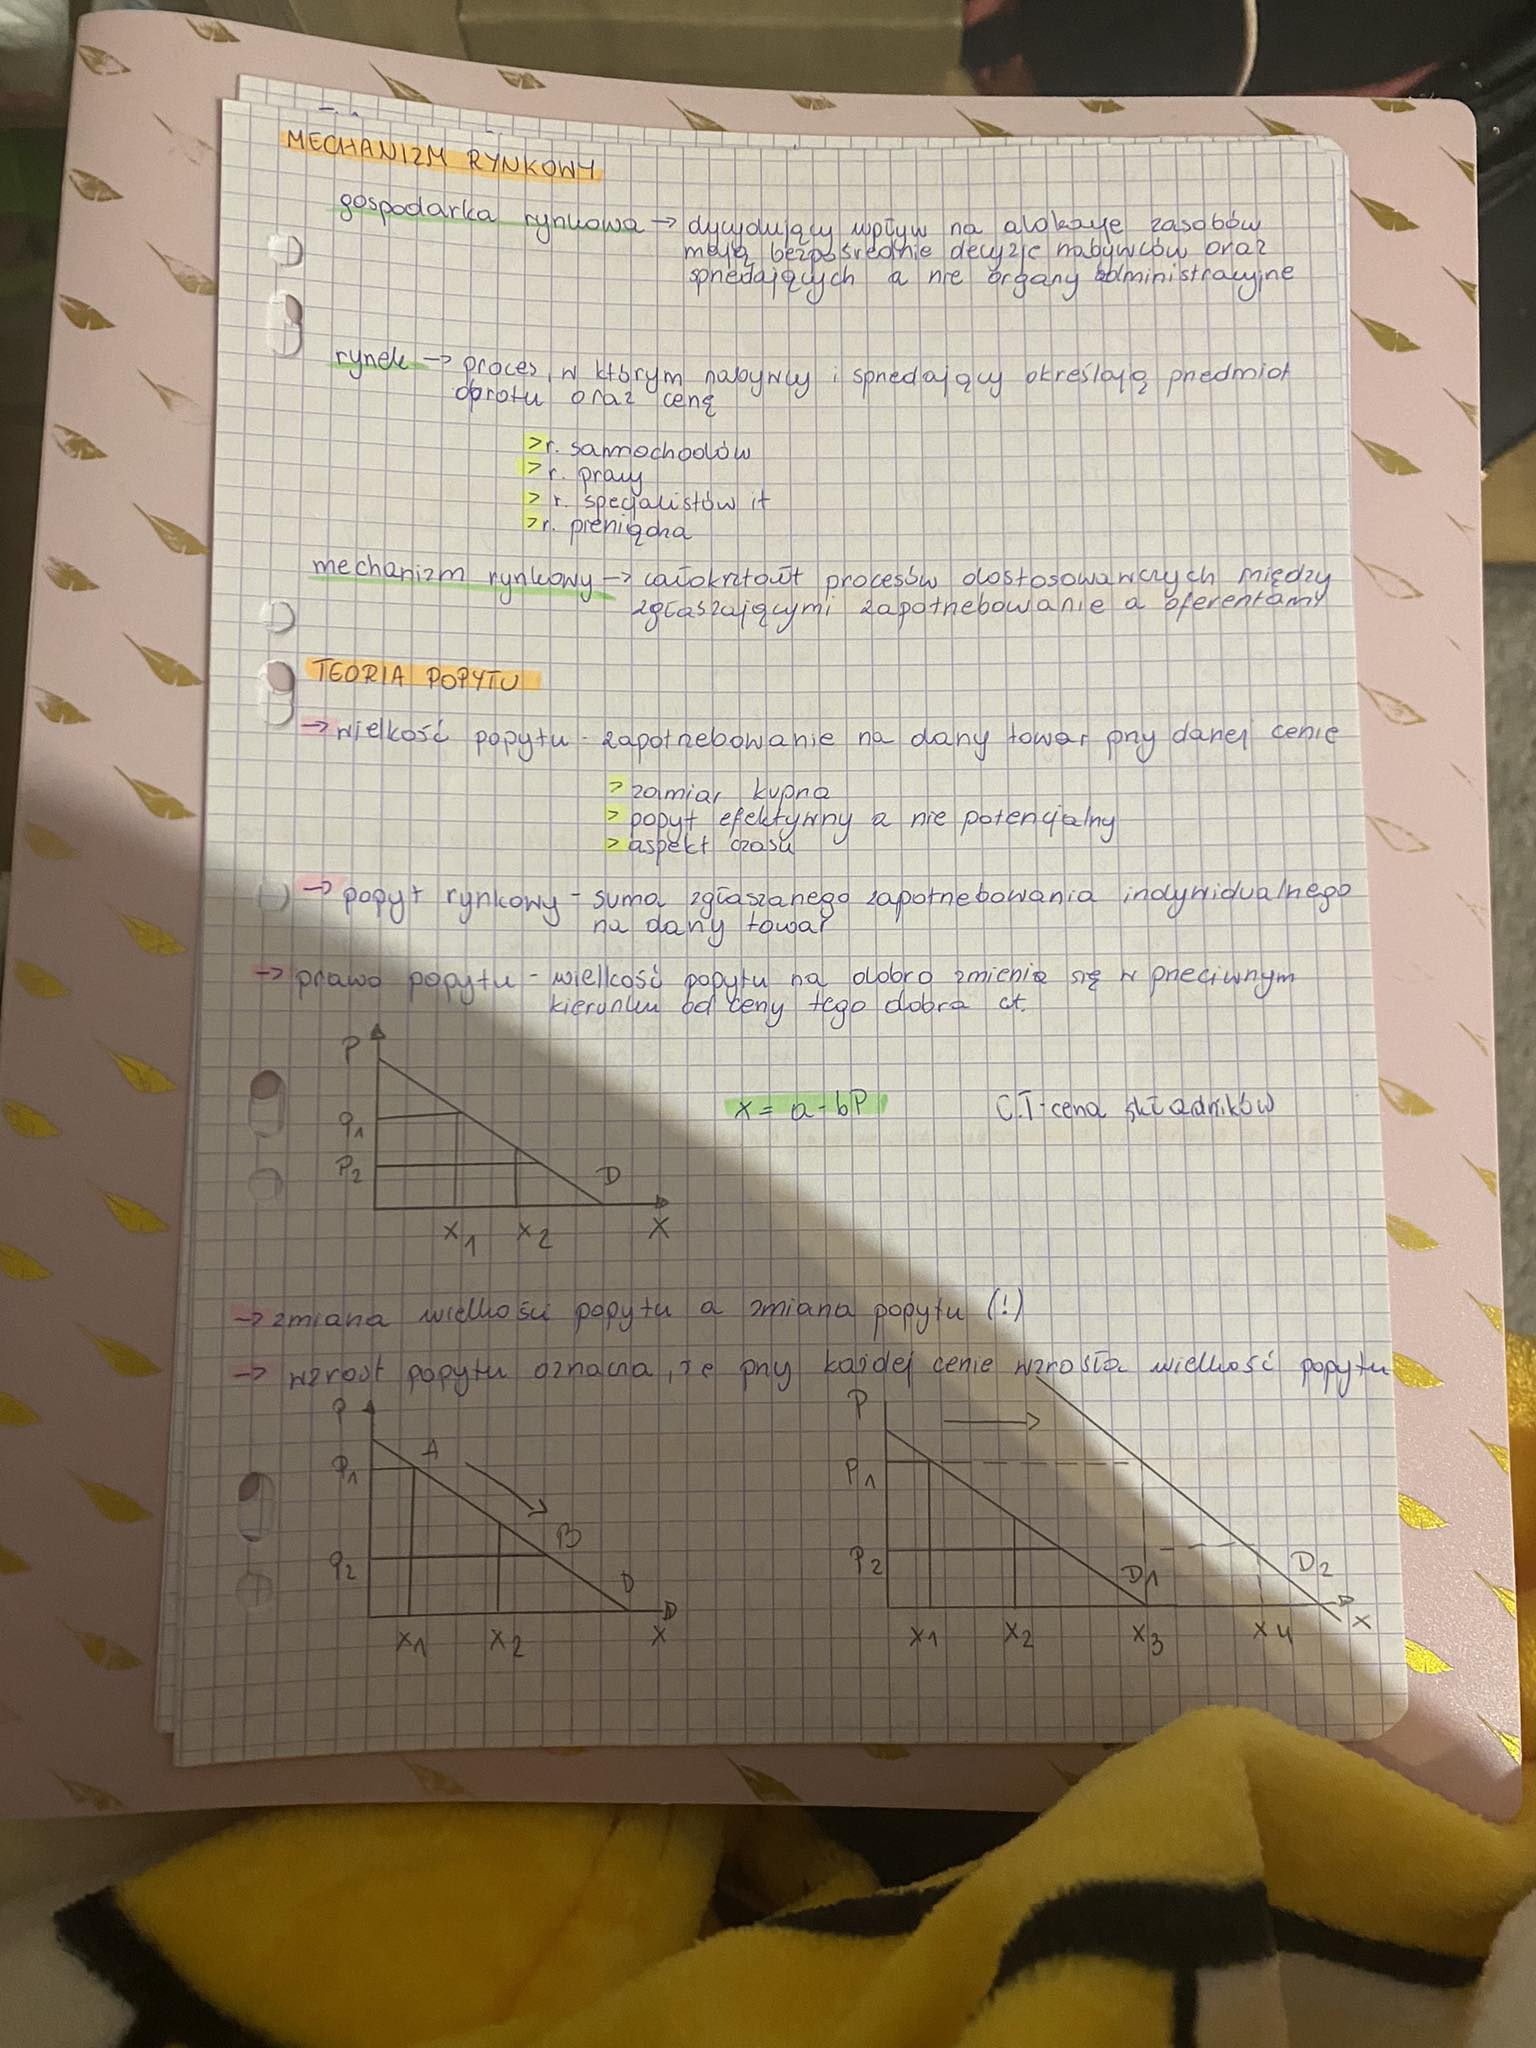 MECHANIZM RYNKOWY
gospodarka rynkowa → dycydujący wpływ na alokację zasobów
mają bezpośrednie decyzje nabywców oraz
sprzedających a nie organy administracyjne
rynek → proces, w którym nabywcy i sprzedający określają przedmiot
obrotu oraz cenę
> r. samochodów
> r. pracy
> r. specjalistów it
> r. pieniądza
mechanizm rynkowy → całokształt procesów dostosowawczych między
zgłaszającymi zapotrzebowanie a oferentamy
TEORIA POPYTU
→ wielkość popytu - zapotrzebowanie na dany towar przy danej cenie
> zamiar kupna
> popyt efektywny a nie potencjalny
> aspekt czasu
→ popyt rynkowy - suma zgłaszanego zapotrzebowania indywidualnego
na dany towar
→ prawo popytu - wielkość popytu na dobro zmienia się w przeciwnym
kierunku od ceny tego dobra ct.
P
P1
P2
D
X1 X2 X
x = a - bP
C.T - cena składników
→ zmiana wielkości popytu a zmiana popytu (!)
→ wzrost popytu oznacza, że przy każdej cenie wzrosła wielkość popytu
P
A
P1
B
P2
D
X1 X2 X
P
P1
P2
D1
D2
X1 X2 X3 X4 X